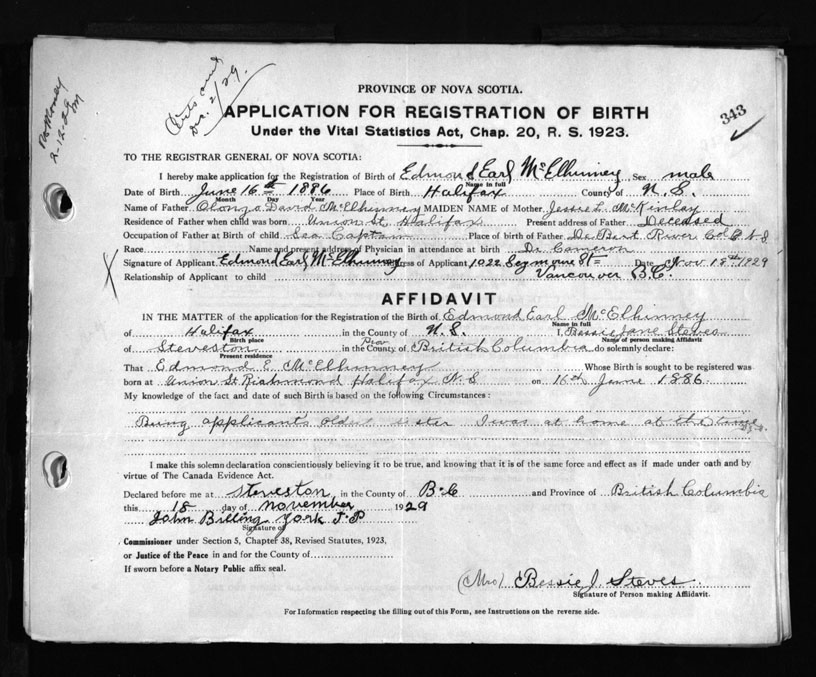 Certs and
Dec. 2/29.
No Money
2.12.29
PROVINCE OF NOVA SCOTIA.
APPLICATION FOR REGISTRATION OF BIRTH
343
Under the Vital Statistics Act, Chap. 20, R. S. 1923.
TO THE REGISTRAR GENERAL OF NOVA SCOTIA:
I hereby make application for the Registration of Birth of Edmond Earl McElhinney Sex male
Name in full
Date of Birth June 16th 1886 Place of Birth Halifax County of N. S.
Month Day Year
Name of Father Alonzo David McElhinney MAIDEN NAME of Mother Jessie L. McKinlay
Residence of Father when child was born Union St. Halifax Present address of Father Deceased
Occupation of Father at Birth of child Sea Captain Place of birth of Father De Bert River Col. Co N S
Race Name and present address of Physician in attendance at birth Dr. Cameron
Signature of Applicant Edmond Earl McElhinney Address of Applicant 1022 Seymour St Date Nov 18th 1929
Relationship of Applicant to child Vancouver B.C.
AFFIDAVIT
IN THE MATTER of the application for the Registration of the Birth of Edmond Earl McElhinney
Name in full
of Halifax in the County of N. S. I, Bessie Jane Steves
Birth place Name of person making Affidavit
Prov
of Steveston in the County of British Columbia do solemnly declare:
Present residence
That Edmond E. McElhinney Whose Birth is sought to be registered was
born at Union St Richmond Halifax N. S on 16th June 1886
My knowledge of the fact and date of such Birth is based on the following Circumstances:
Being applicants older sister I was at home at the time
I make this solemn declaration conscientiously believing it to be true, and knowing that it is of the same force and effect as if made under oath and by
virtue of The Canada Evidence Act.
Declared before me at Steveston in the County of B.C and Province of British Columbia
this 18 day of November 1929
John Billing York J.P
Signature of
Commissioner under Section 5, Chapter 38, Revised Statutes, 1923,
or Justice of the Peace in and for the County of
If sworn before a Notary Public affix seal.
(Mrs) Bessie J. Steves
Signature of Person making Affidavit.
For Information respecting the filling out of this Form, see Instructions on the reverse side.